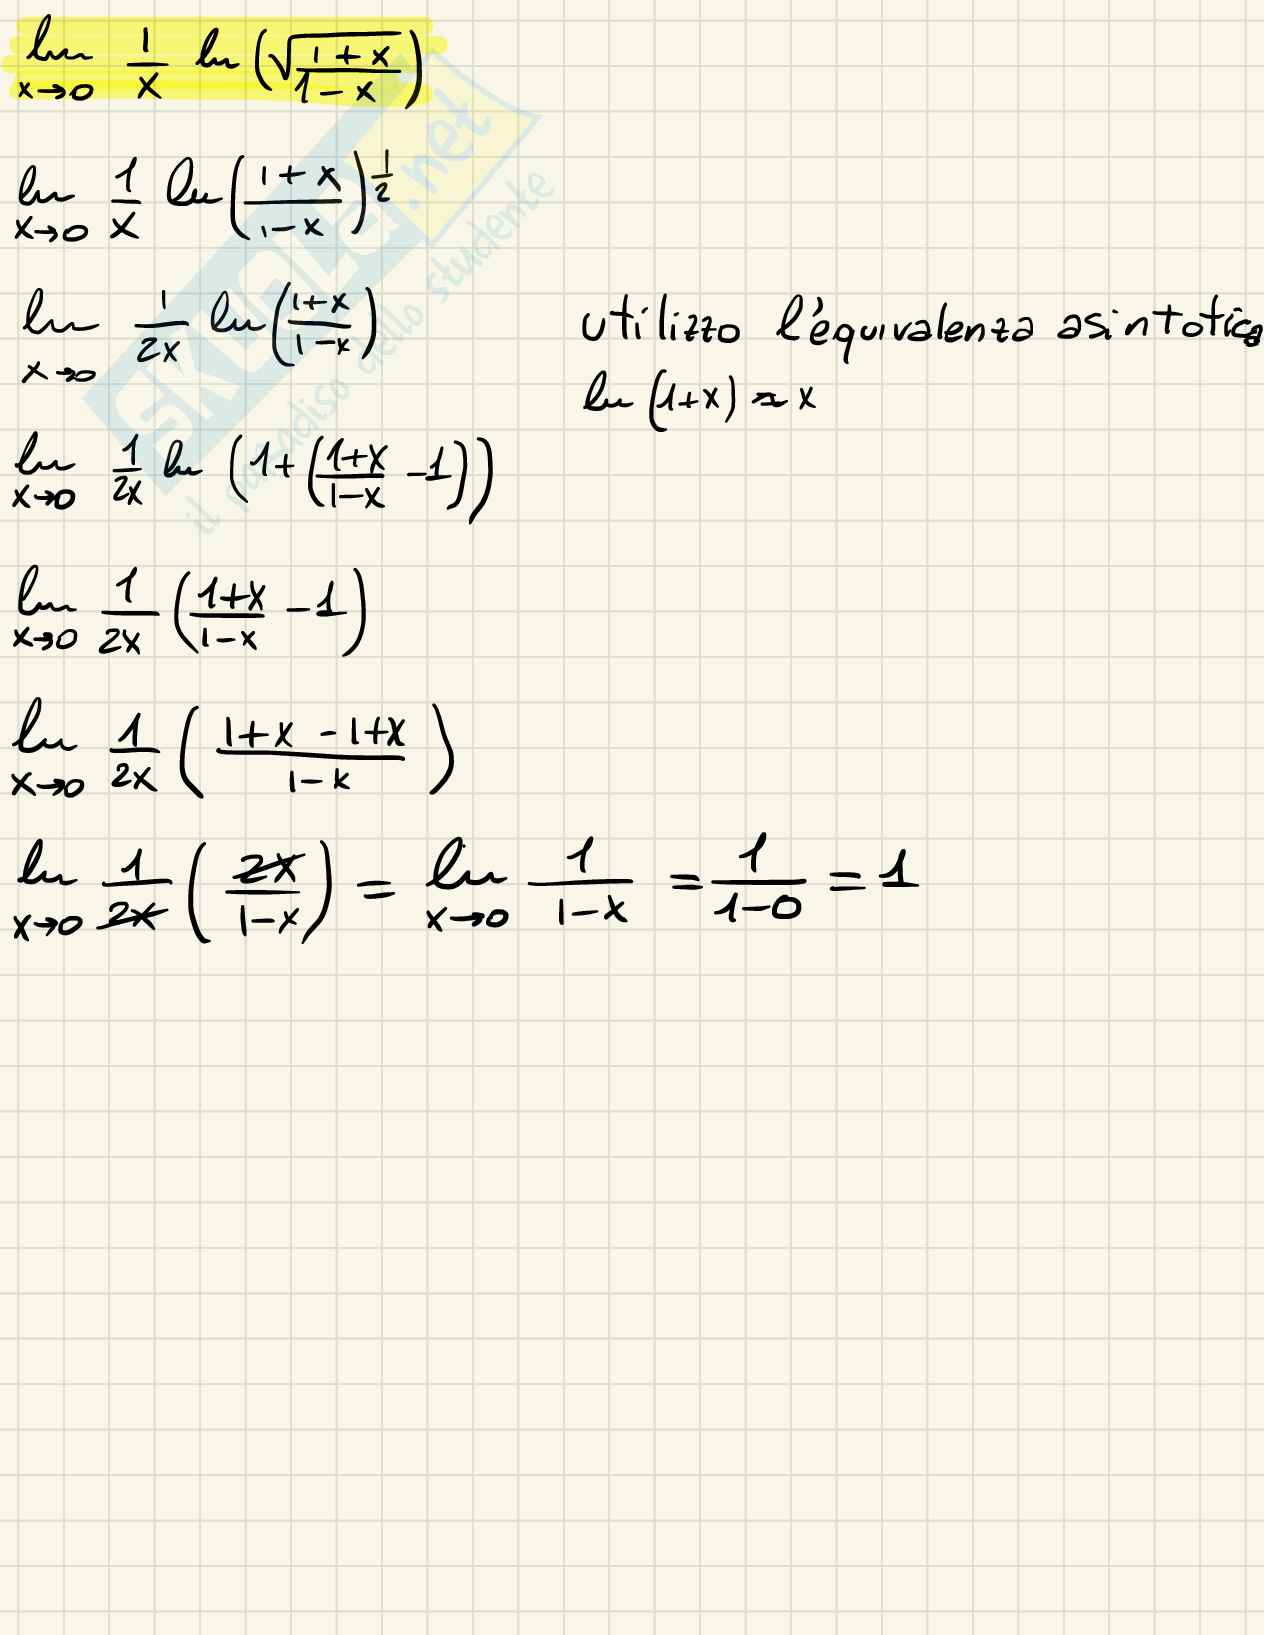 lim x→0 1/x ln(√((1+x)/(1-x)))
lim x→0 1/x ln((1+x)/(1-x))^(1/2)
lim x→0 1/2x ln((1+x)/(1-x)) utilizzo l'equivalenza asintotica
ln(1+x) ≈ x
lim x→0 1/2x ln(1+((1+x)/(1-x) -1))
lim x→0 1/2x ((1+x)/(1-x) -1)
lim x→0 1/2x ((1+x -1+x)/(1-x))
lim x→0 1/2x (2x/(1-x)) = lim x→0 1/(1-x) = 1/(1-0) = 1
SKUOLA.net
il paradiso dello studente